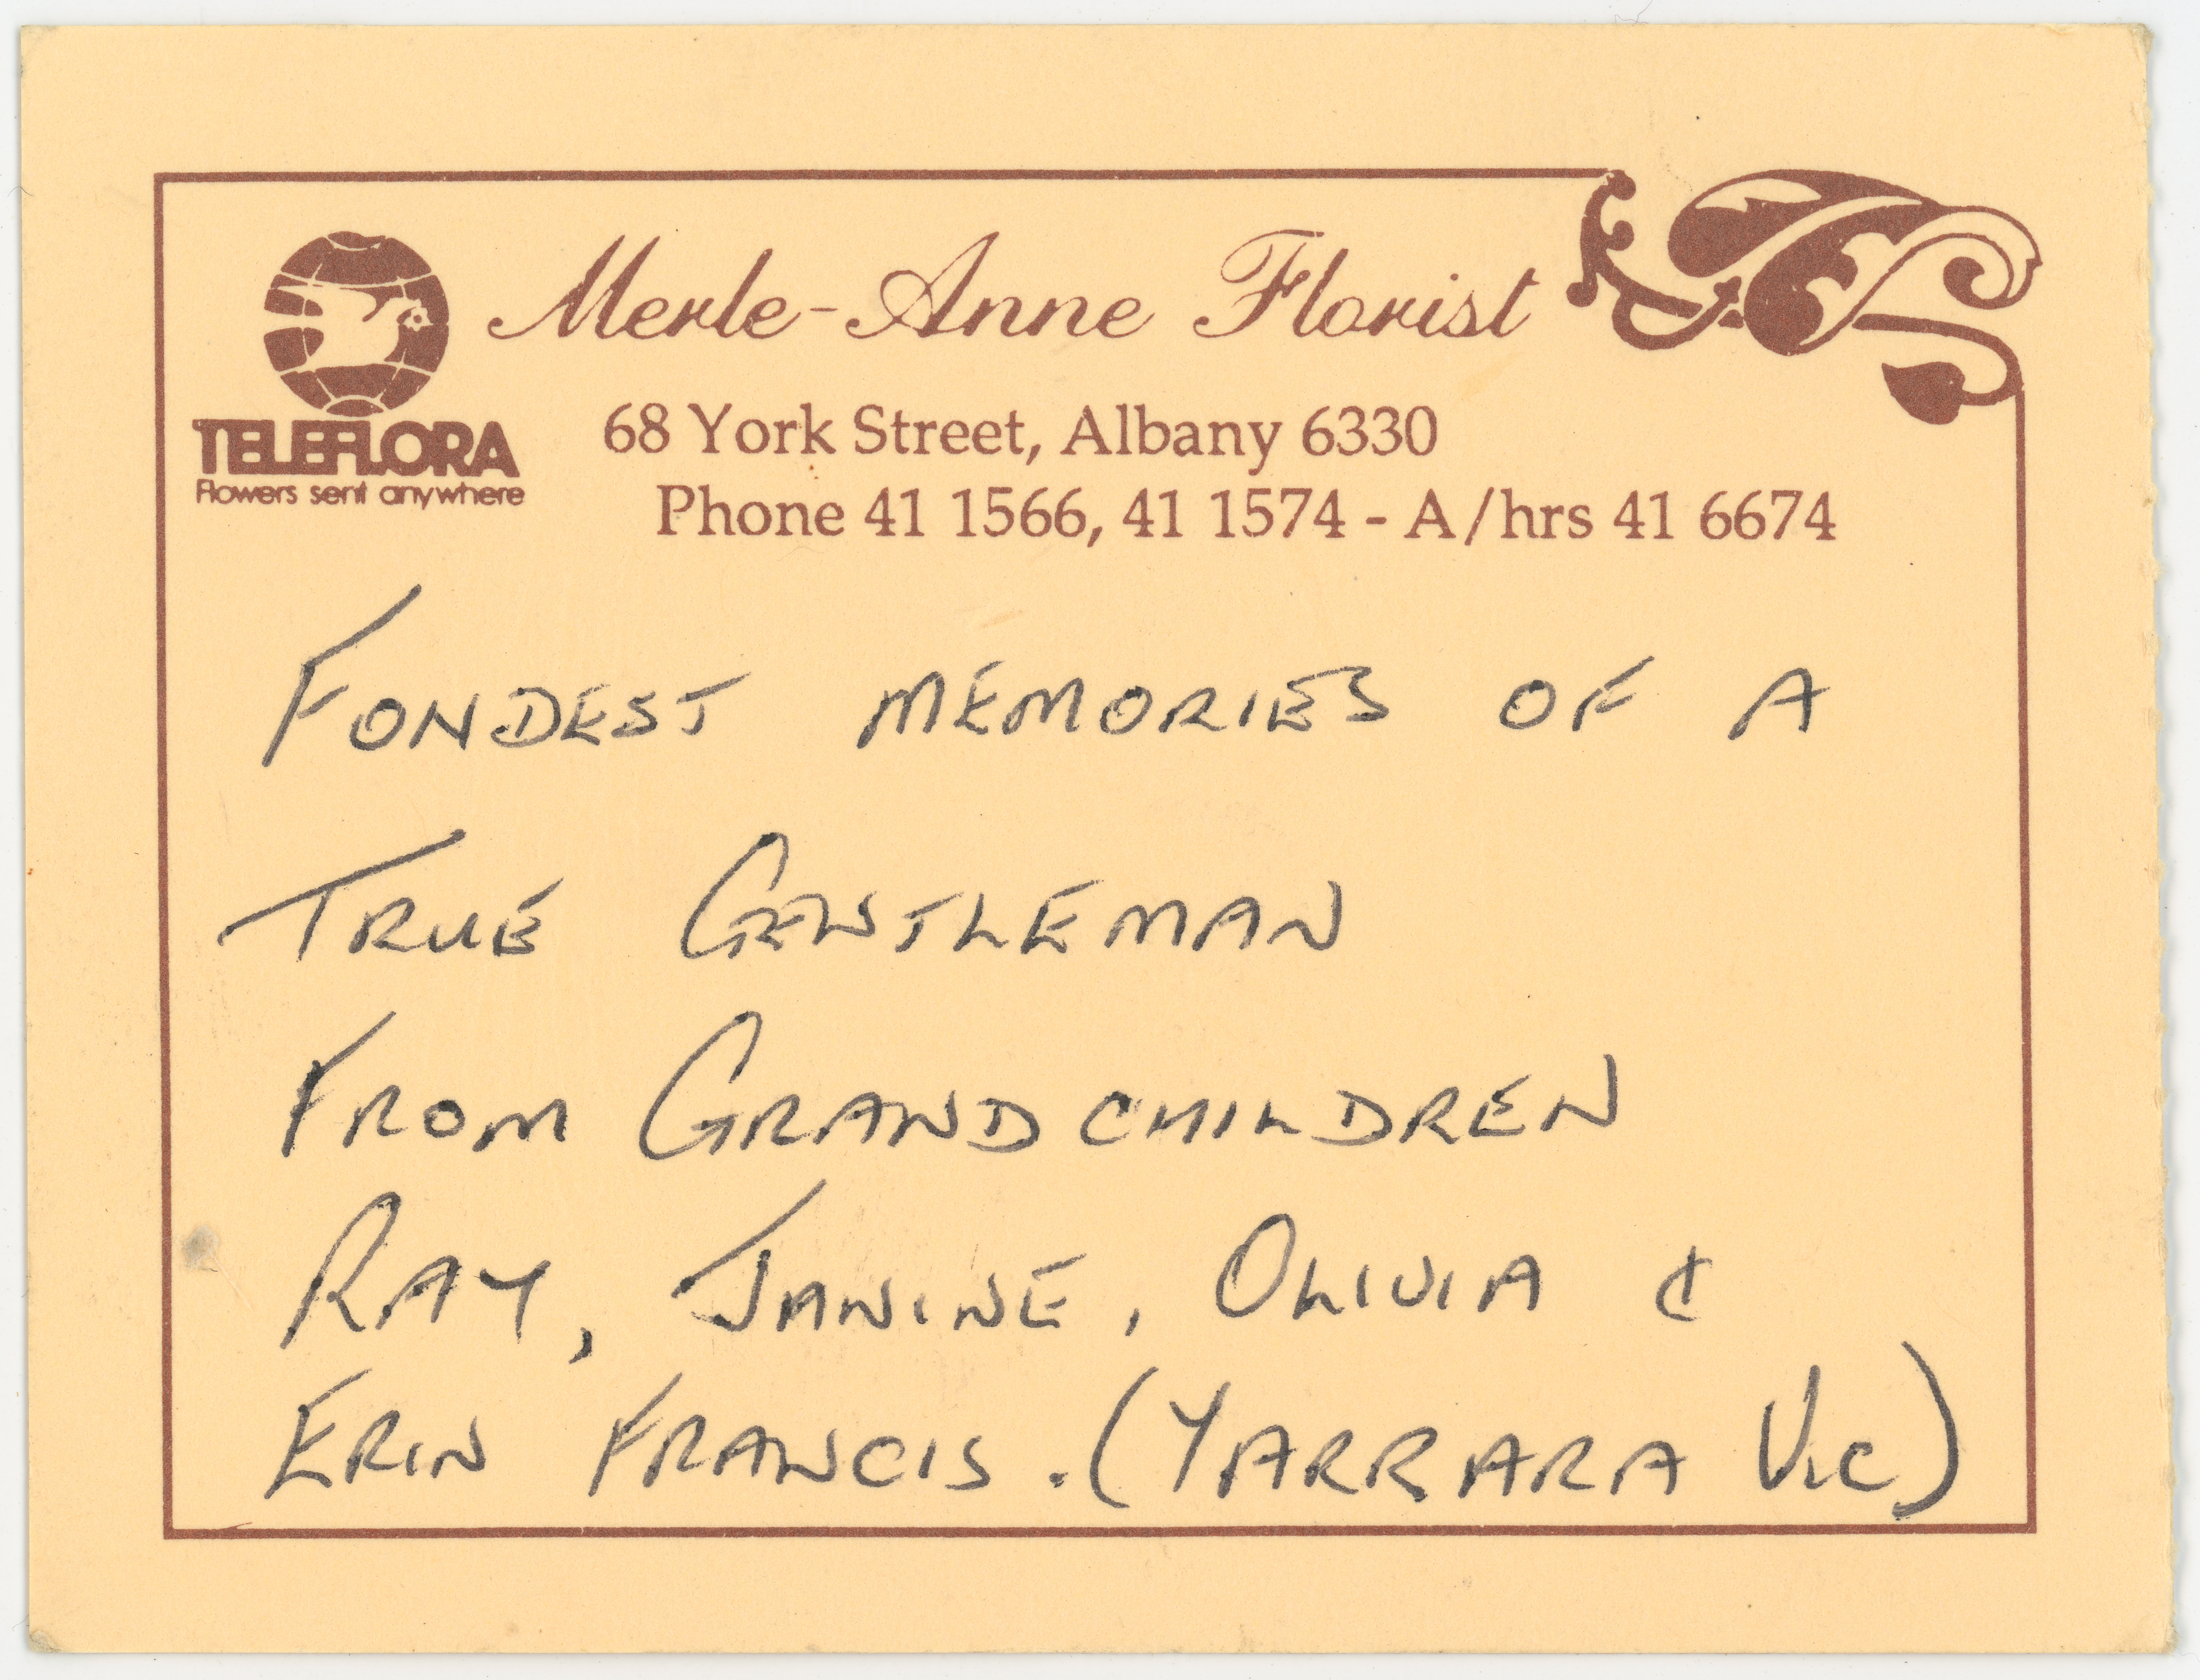 Merle-Anne Florist
TELEFLORA
Flowers sent anywhere
68 York Street, Albany 6330
Phone 41 1566, 41 1574 - A/hrs 41 6674
FONDEST MEMORIES OF A
TRUE GENTLEMAN
FROM GRANDCHILDREN
RAY, JANINE, OLIVIA &
ERIN FRANCIS. (YARRARA VIC)